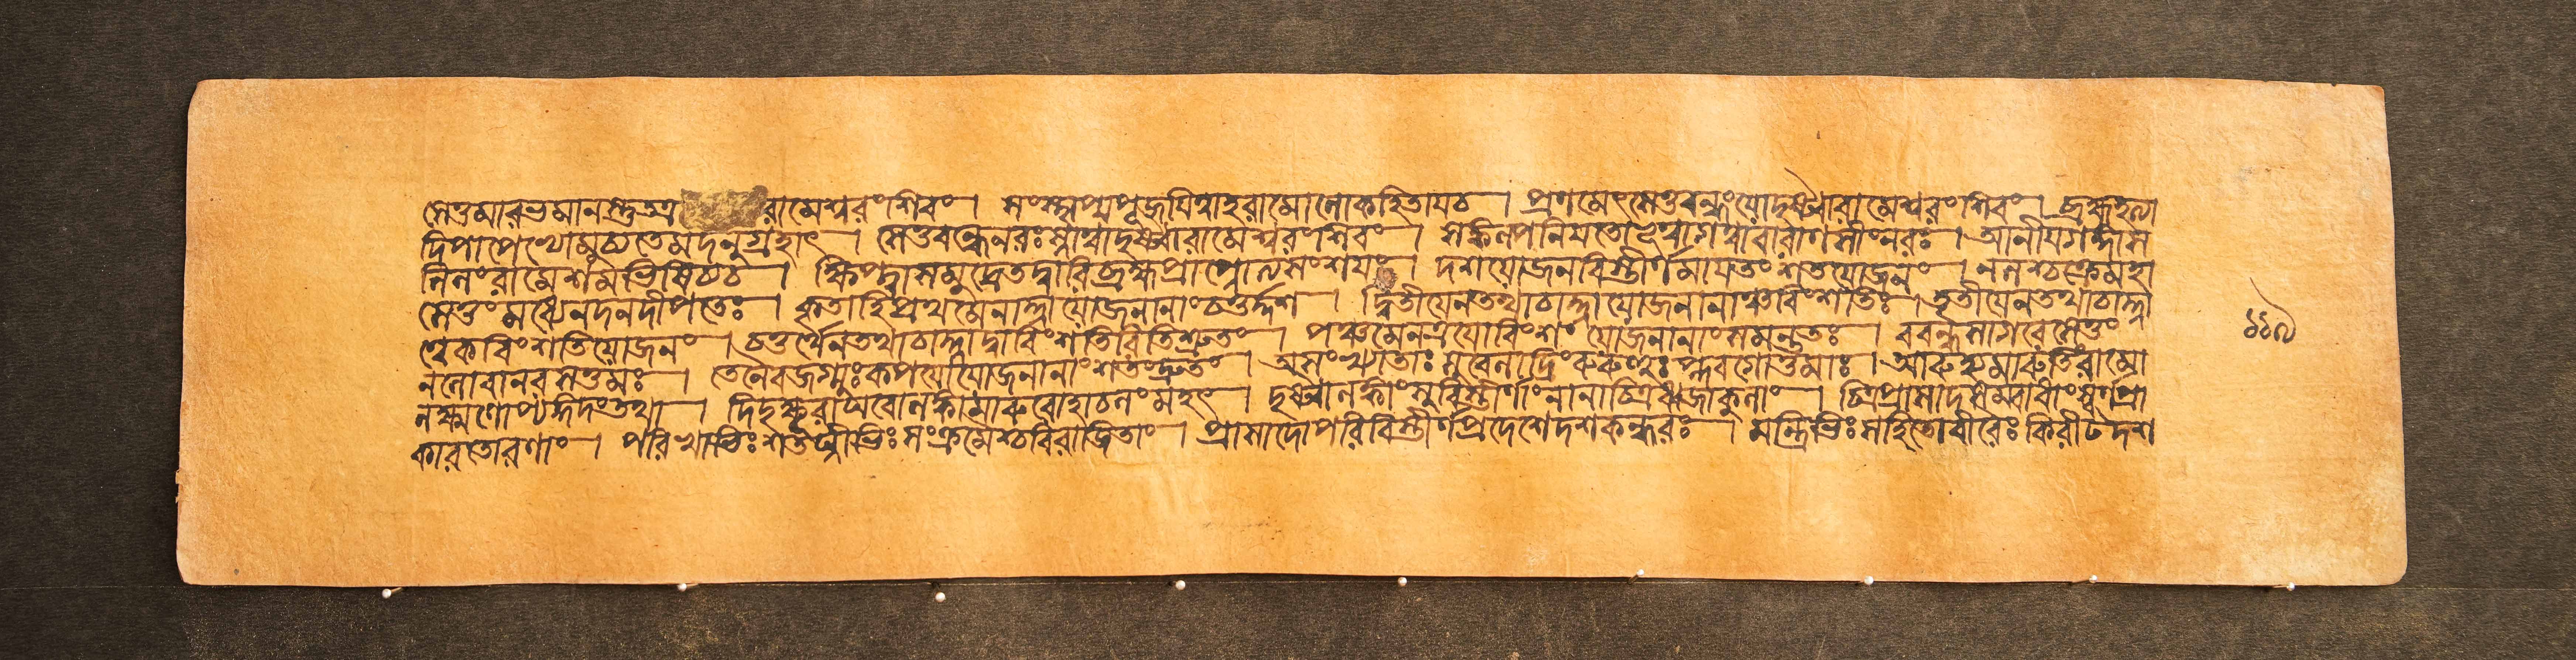 সেতুমারভমানস্তুতত্র রামেশ্বরংশিবং। সংস্থাপ্যপূজযিত্বাহরামোলোকহিতাযচ। প্রণমেৎসেতুবন্ধংযোদৃষ্ট্বারামেশ্বরংশিবং। ব্রহ্মহত্যা
দিপাপেভ্যোমুচ্যতেমদনুগ্রহাৎ। সেতুবন্ধেনরঃস্নাত্বাদৃষ্ট্বারামেশ্বরংশিবং। সঙ্কল্পনিযতোভূত্বাগত্বাবারাণসীংনরঃ। আনীযগঙ্গাস
লিলংরামেশমভিষিচ্যচ। ক্ষিপ্ত্বাসমুদ্রেতদ্বারিব্রহ্মপ্রাপ্নোত্যসংশযং। দশযোজনবিস্তীর্ণমাযতংশতযোজনং। নলশ্চক্রেমহা
সেতুংমধ্যেনদনদীপতেঃ। কৃতাহিপ্রথমেনাহ্নাযোজনানাংচতুর্দ্দশ। দ্বিতীযেনতথাচাহ্নাযোজনানাঞ্চবিংশতিঃ। তৃতীযেনতথাচাহ্না
ত্বেকবিংশতিযোজনং। চতুর্থেনতথাচাহ্নাদ্বাবিংশতিরিতিশ্রুতং। পঞ্চমেনত্রযোবিংশংযোজনানাংসমন্ততঃ। ববন্ধসাগরেসেতুং
নলোবানরসত্তমঃ। তেনৈবজগ্মুঃকপযোযোজনানাংশতংদ্রুতং। অসংখ্যাতাঃসুবেলাদ্রিংরুরুধুঃপ্লবগোত্তমাঃ। আরুহ্যমারুতিংরামো
লক্ষ্মণোপ্যঙ্গদংতথা। দিদৃক্ষূরাঘবোলঙ্কামারুরোহাচলংমহৎ। দৃষ্ট্বালঙ্কাংসুবিস্তীর্ণাংনানাচিত্রধ্বজাকুলাং। চিত্রপ্রাসাদসংবাধাংস্বর্ণপ্রা
কারতোরণাং। পরিখাভিঃশতঘ্নীভিঃসংক্রমৈশ্চবিরাজিতাং। প্রাসাদোপরিবিস্তীর্ণপ্রদেশেদশকন্ধরঃ। মন্ত্রিভিঃসহিতোবীরৈঃকিরীটদশ
১১৭